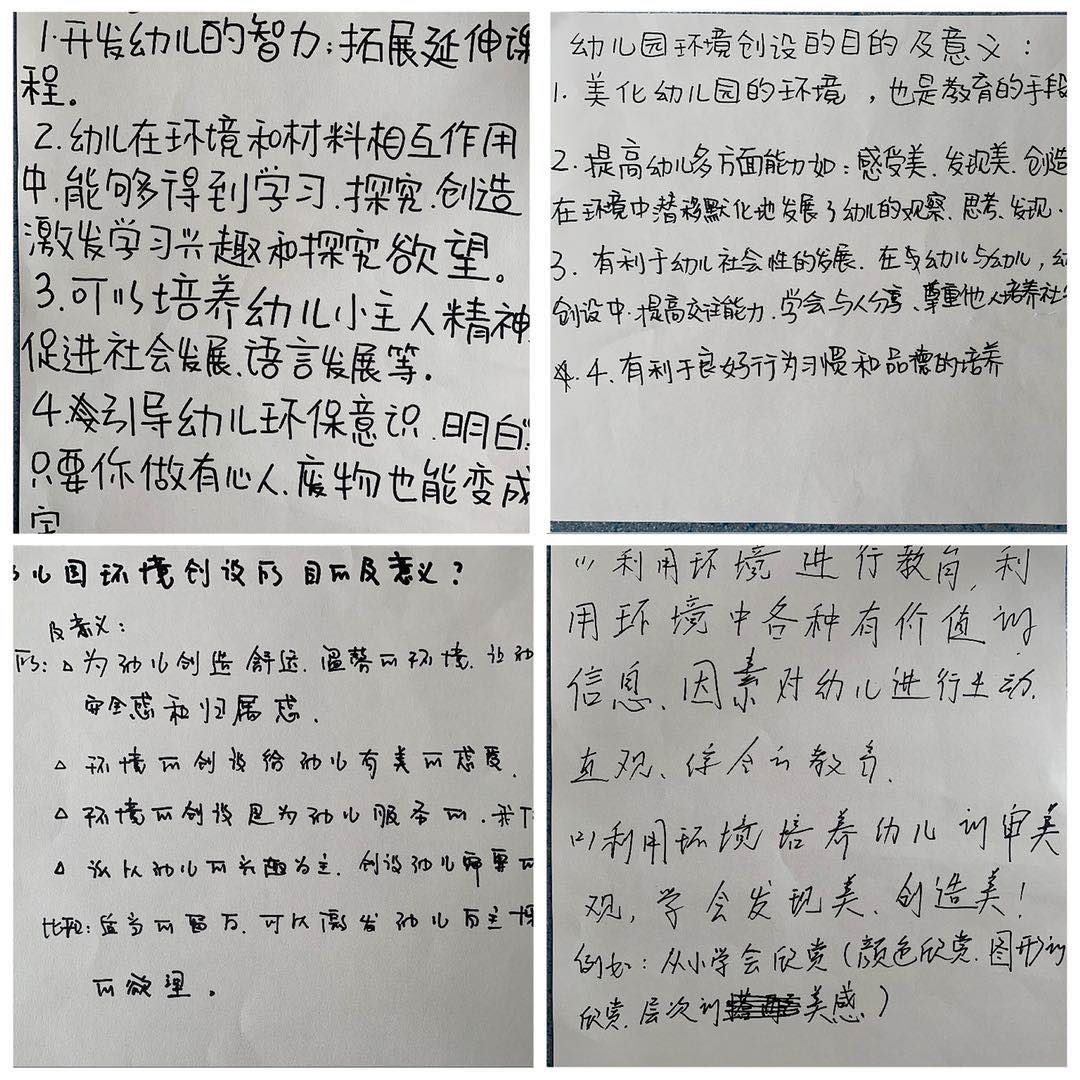 1.开发幼儿的智力；拓展延伸课
程。
2.幼儿在环境和材料相互作用
中.能够得到学习.探究.创造
激发学习兴趣和探究欲望。
3.可以培养幼儿小主人精神
促进社会发展.语言发展等.
4.引导幼儿环保意识.明白"
只要你做有心人.废物也能变成
宝
幼儿园环境创设的目的及意义：
1. 美化幼儿园的环境，也是教育的手段
2.提高幼儿多方面能力如：感受美.发现美.创造
在环境中潜移默化地发展了幼儿的观察.思考.发现.
3. 有利于幼儿社会性的发展.在与幼儿与幼儿，幼
创设中.提高交往能力.学会与人分享、尊重他人培养社
4.有利于良好行为习惯和品德的培养
儿园环境创设的目的及意义？
及意义：
△为幼儿创造舒适.温馨的环境.让幼
安全感和归属感.
△ 环境的创设给幼儿有美的感受.
△ 环境的创设是为幼儿服务的.
△ 以幼儿的兴趣为主.创设幼儿需要的
比如：适当的留白.可以激发幼儿自主探
的欲望。
(1)利用环境进行教育,利
用环境中各种有价值的
信息、因素对幼儿进行生动.
直观、综合的教育.
(2)利用环境培养幼儿的审美
观，学会发现美、创造美！
例如：从小学会欣赏(颜色欣赏.图形的
欣赏.层次的美感.)